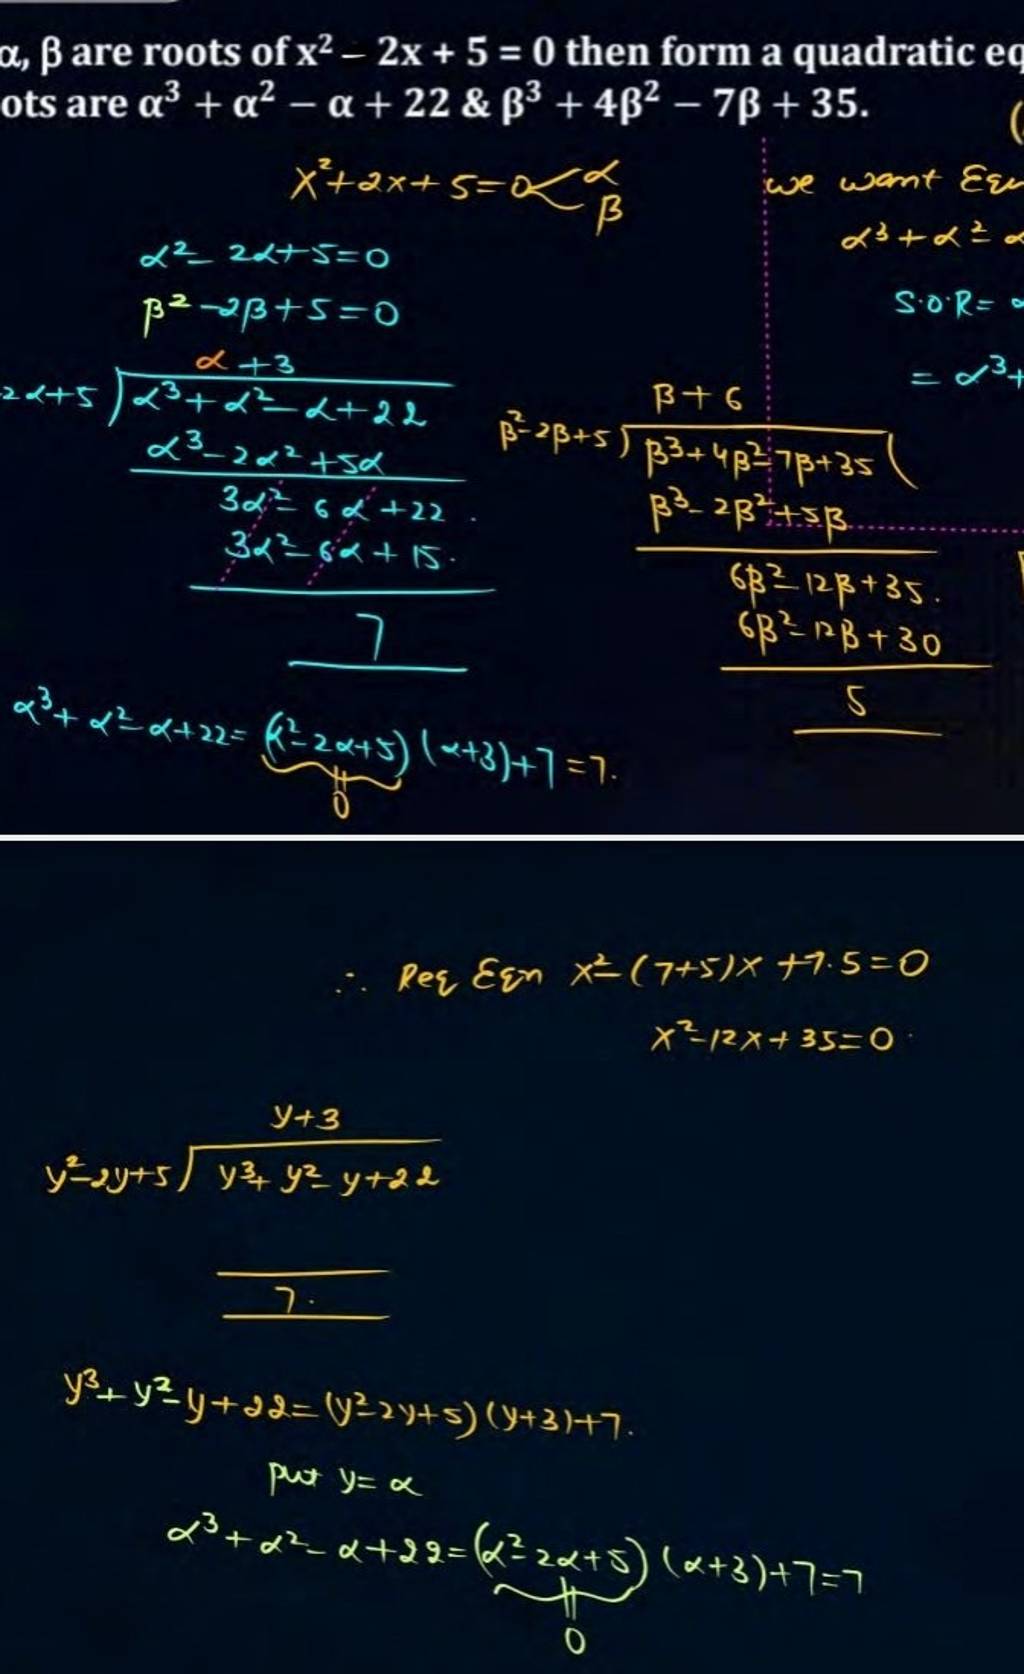 α, β are roots of x² – 2x + 5 = 0 then form a quadratic eq
ots are α³ + α² – α + 22 & β³ + 4β² – 7β + 35.
x²+2x+5=0 < α
β
we want Eqn
α³+α²-α
S.O.R=
= α³+
α²-2α+5=0
β²-2β+5=0
α+3
2α+5) α³+α²-α+22
α³-2α²+5α
3α²-6α+22
3α²-6α+15.
7
β+6
β²-2β+5) β³+4β²-7β+35(
β³-2β²+5β
6β²-12β+35.
6β²-12β+30
5
α³+α²-α+22=(α²-2α+5)(α+3)+7=7.
0
∴ Req Eqn x²-(7+5)x+7.5=0
x²-12x+35=0.
y+3
y²-2y+5) y³+y²-y+22
7.
y³+y²-y+22=(y²-2y+5)(y+3)+7.
put y=α
α³+α²-α+22=(α²-2α+5)(α+3)+7=7
0